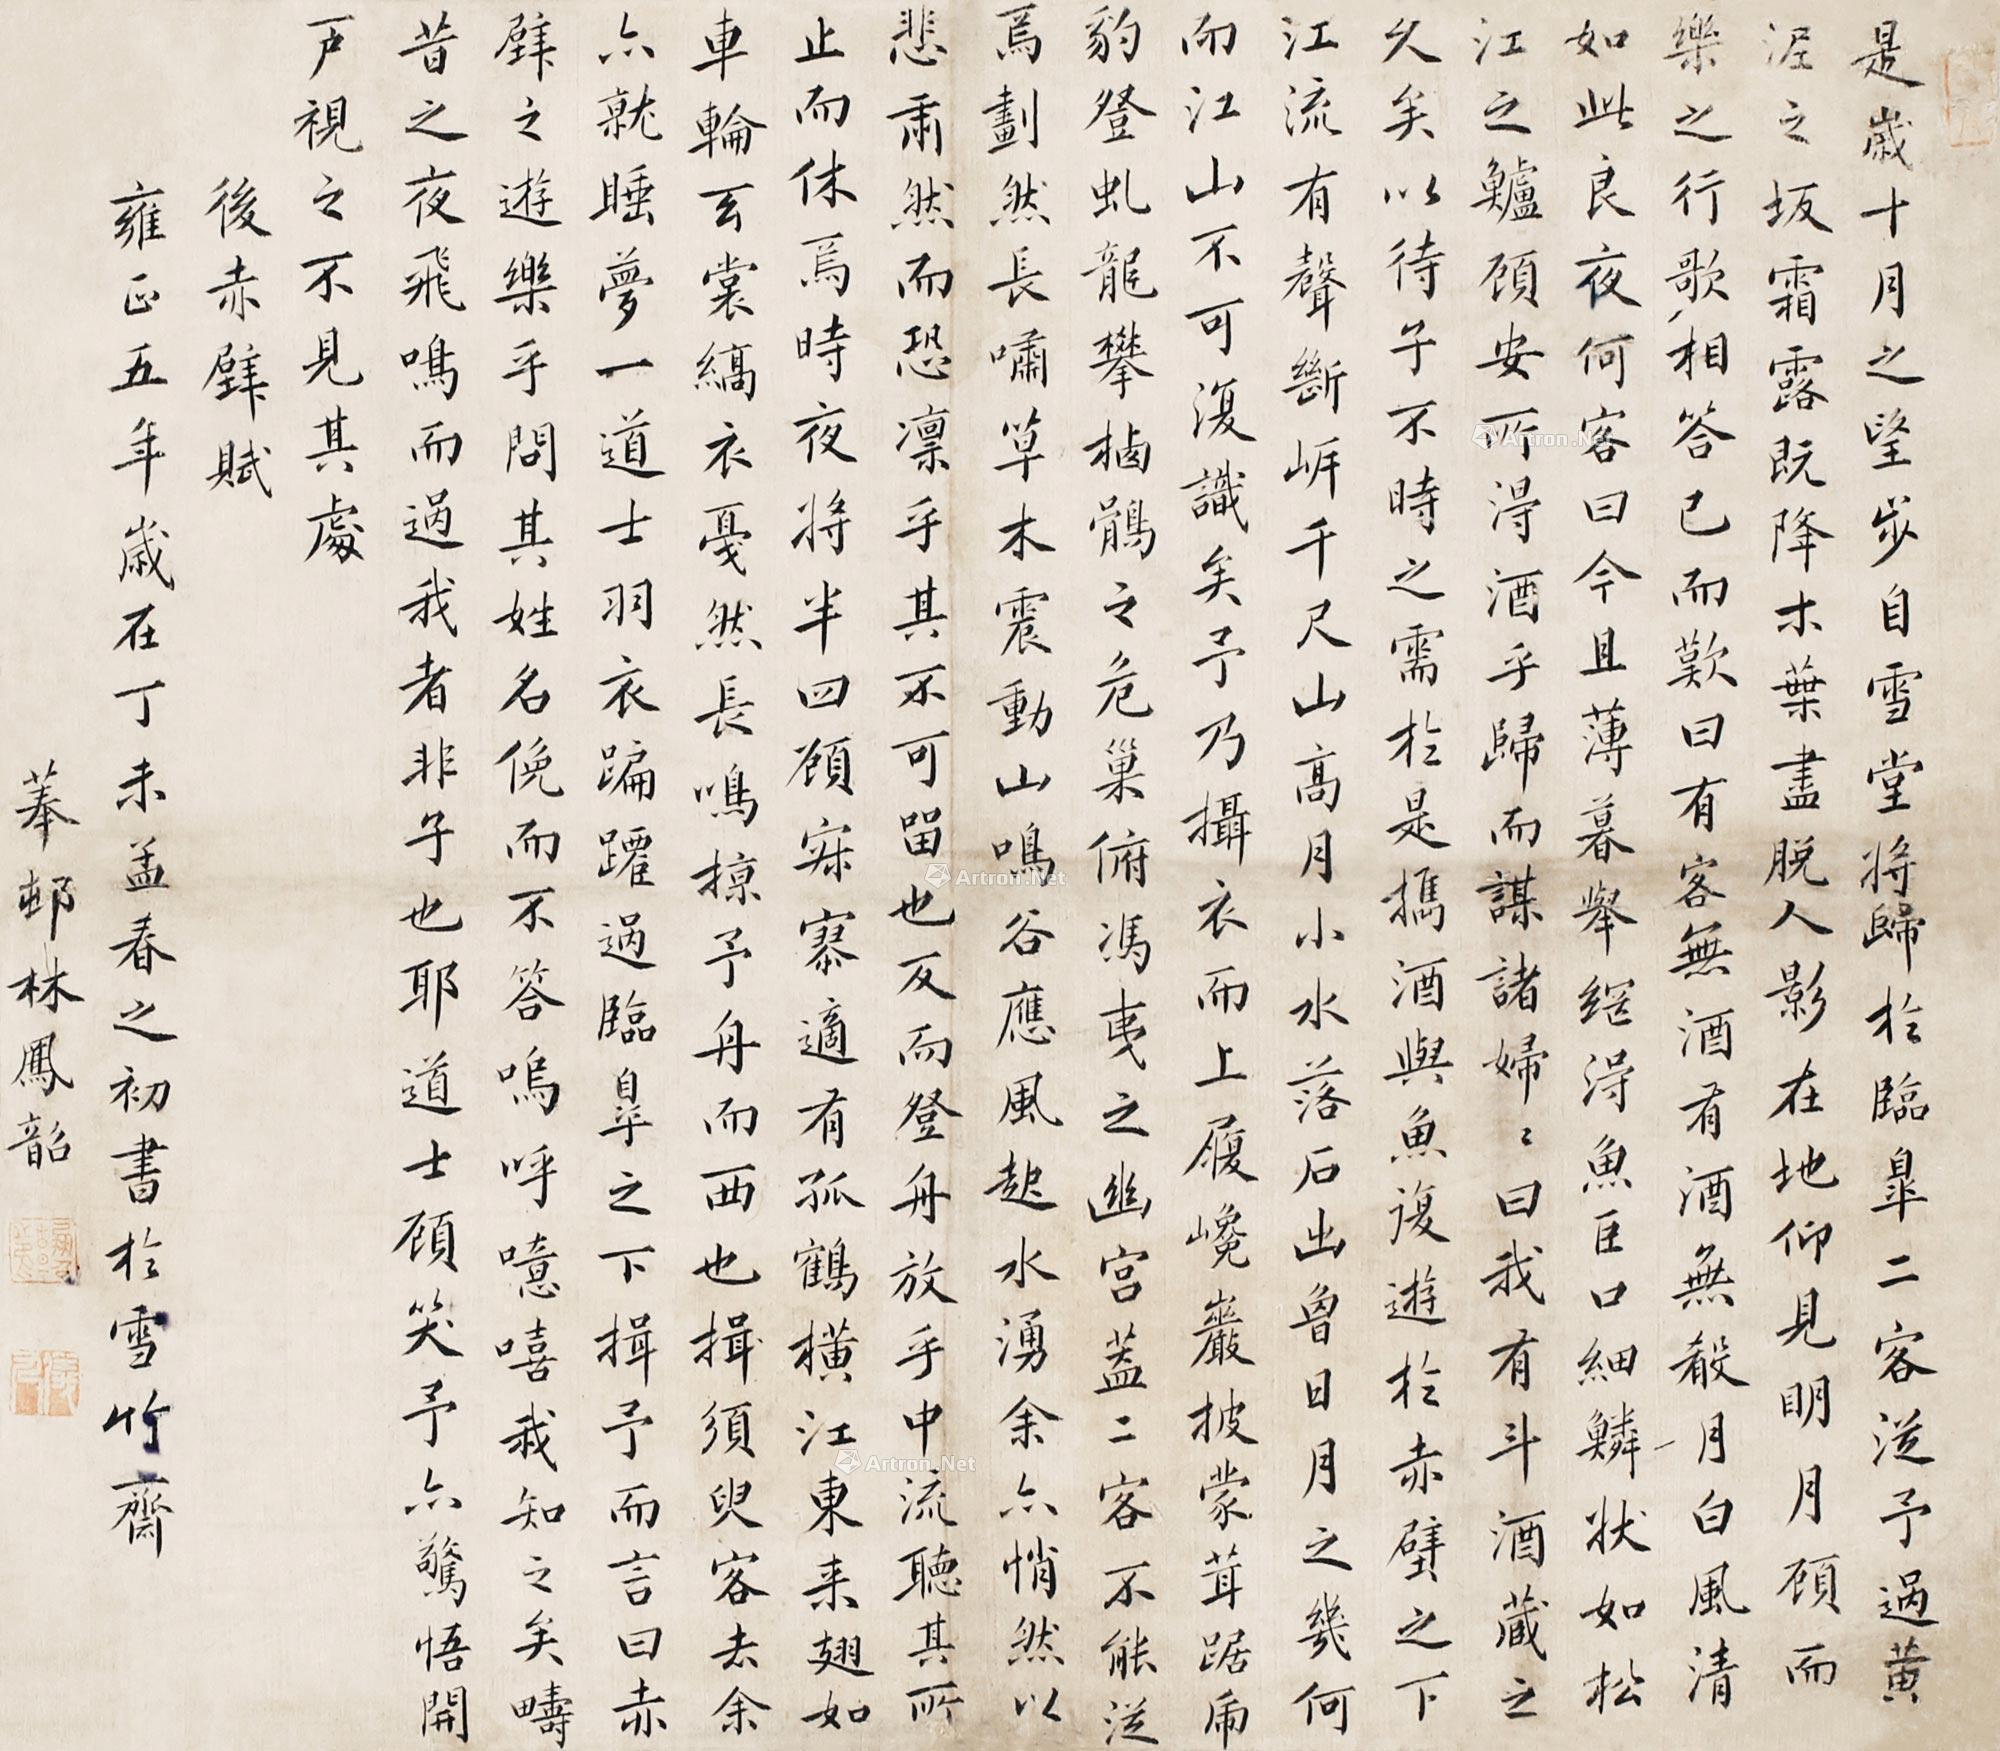 是歲十月之望步自雪堂將歸於臨皐二客從予過黃
泥之坂霜露既降木葉盡脱人影在地仰見明月顧而
樂之行歌相答已而歎曰有客無酒有酒無殽月白風清
如此良夜何客曰今且薄暮舉網得魚巨口細鱗狀如松
江之鱸顧安所得酒乎歸而謀諸婦〻曰我有斗酒藏之
久矣以待子不時之需於是攜酒與魚復遊於赤壁之下
江流有聲斷岸千尺山高月小水落石出曾日月之幾何
而江山不可復識矣予乃攝衣而上履巉巖披蒙茸踞虎
豹登虬龍攀栖鶻之危巢俯馮夷之幽宮蓋二客不能從
焉劃然長嘯草木震動山鳴谷應風起水湧余亦悄然以
悲肅然而恐凛乎其不可留也反而登舟放乎中流聽其所
止而休焉時夜將半四顧寂寥適有孤鶴橫江東来翅如
車輪玄裳縞衣戛然長鳴掠予舟而西也揖須臾客去余
亦就睡夢一道士羽衣蹁躚過臨皐之下揖予而言曰赤
壁之遊樂乎問其姓名俛而不答嗚呼噫嘻我知之矣疇
昔之夜飛鳴而過我者非子也耶道士顧笑予亦驚悟開
戸視之不見其處
後赤壁賦
雍正五年歲在丁未孟春之初書於雪竹齋
林鳳韶
Artron.Net
Artron.Net
Artron.Net